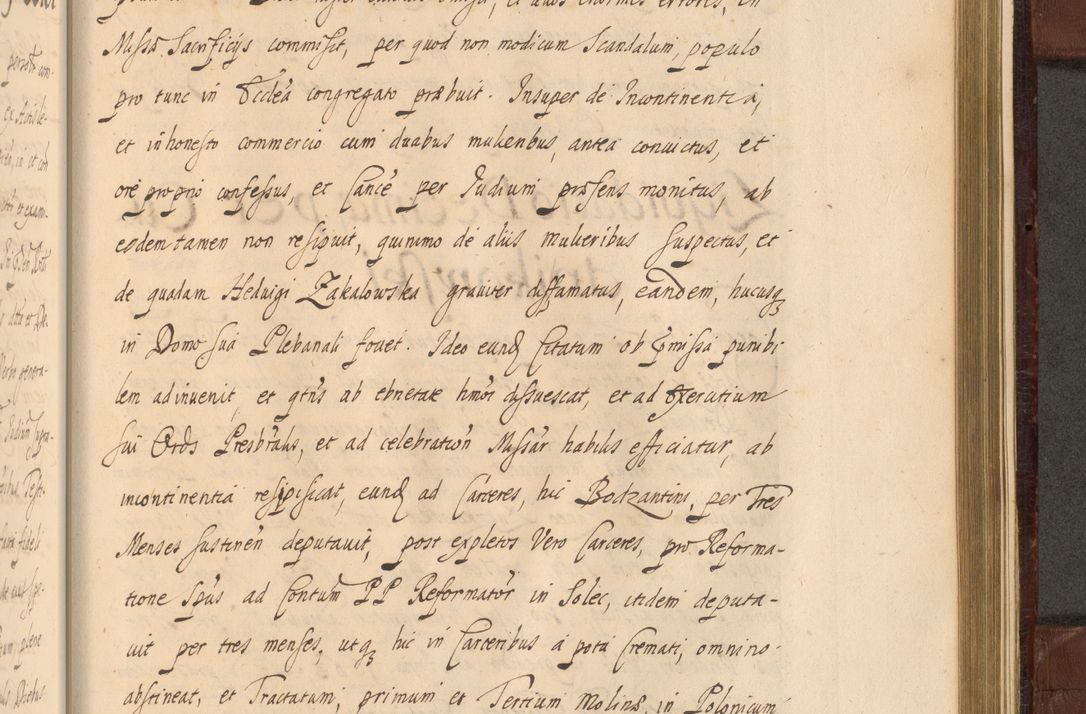 Missar Sacrificijs commisit, per quod non modicum Scandalum, populo
pro tunc in Eccle͠a congregato præbuit. Insuper de Incontinentia,
et inhonesto commercio cum duabus mulieribus, antea convictus, et
ore proprio confessus, et Canc͠e per Iudium præsens monitus, ab
eodem tamen non resipuit, quinimo de aliis mulieribus suspectus, et
de quadam Heduigi Zakalowska graviter diffamatus, eandem, hucusq
in Domo sua Plebanali fovet. Ideo eund Citatum ob p͠missa punibi
lem adinvenit, et qt͠ns ab ebrietate hm͠oi dissuescat, et ad Exercitium
sui Ord͠s Presbr͠alis, et ad celebration͠ Missar͠ habilis efficiatur, ab
incontinentia resipiscat, eund ad Carceres, hic Bodzantins, per Tres
Menses sustinen͠ deputavit, post expletos Vero Carceres, pro Reforma-
tione Sp͠us ad Con͠tum PP Reformator͠ in Solec, itidem deputa-
vit per tres menses, utq hic in Carceribus a potu Cremati, omnino
abstineat, et Tractatum, primum et Tertium Molinæ, in Polonicum